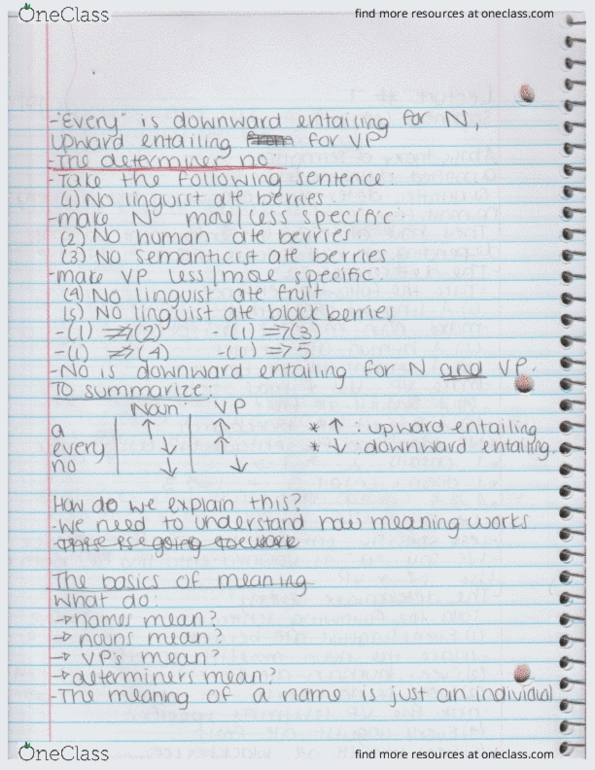 OneClass
find more resources at oneclass.com
-"Every" is downward entailing for N,
upward entailing for VP
-The determiner no:
-Take the following sentence:
(1) No linguist ate berries
-make N more/less specific
(2) No human ate berries
(3) No semanticist ate berries
-make VP less/more specific:
(4) No linguist ate fruit
(5) No linguist ate blackberries
-(1) ⇏ (2) -(1) ⇒ (3)
-(1) ⇏ (4) -(1) ⇒ 5
-No is downward entailing for N and VP.
To summarize:
Noun: VP
a ↑ ↑ * ↑ : upward entailing
every ↓ ↑ * ↓ : downward entailing.
no ↓ ↓
How do we explain this?
-We need to understand how meaning works
The basics of meaning
What do:
→ names mean?
→ nouns mean?
→ VP's mean?
→ determiners mean?
-The meaning of a name is just an individial
OneClass
find more resources at oneclass.com